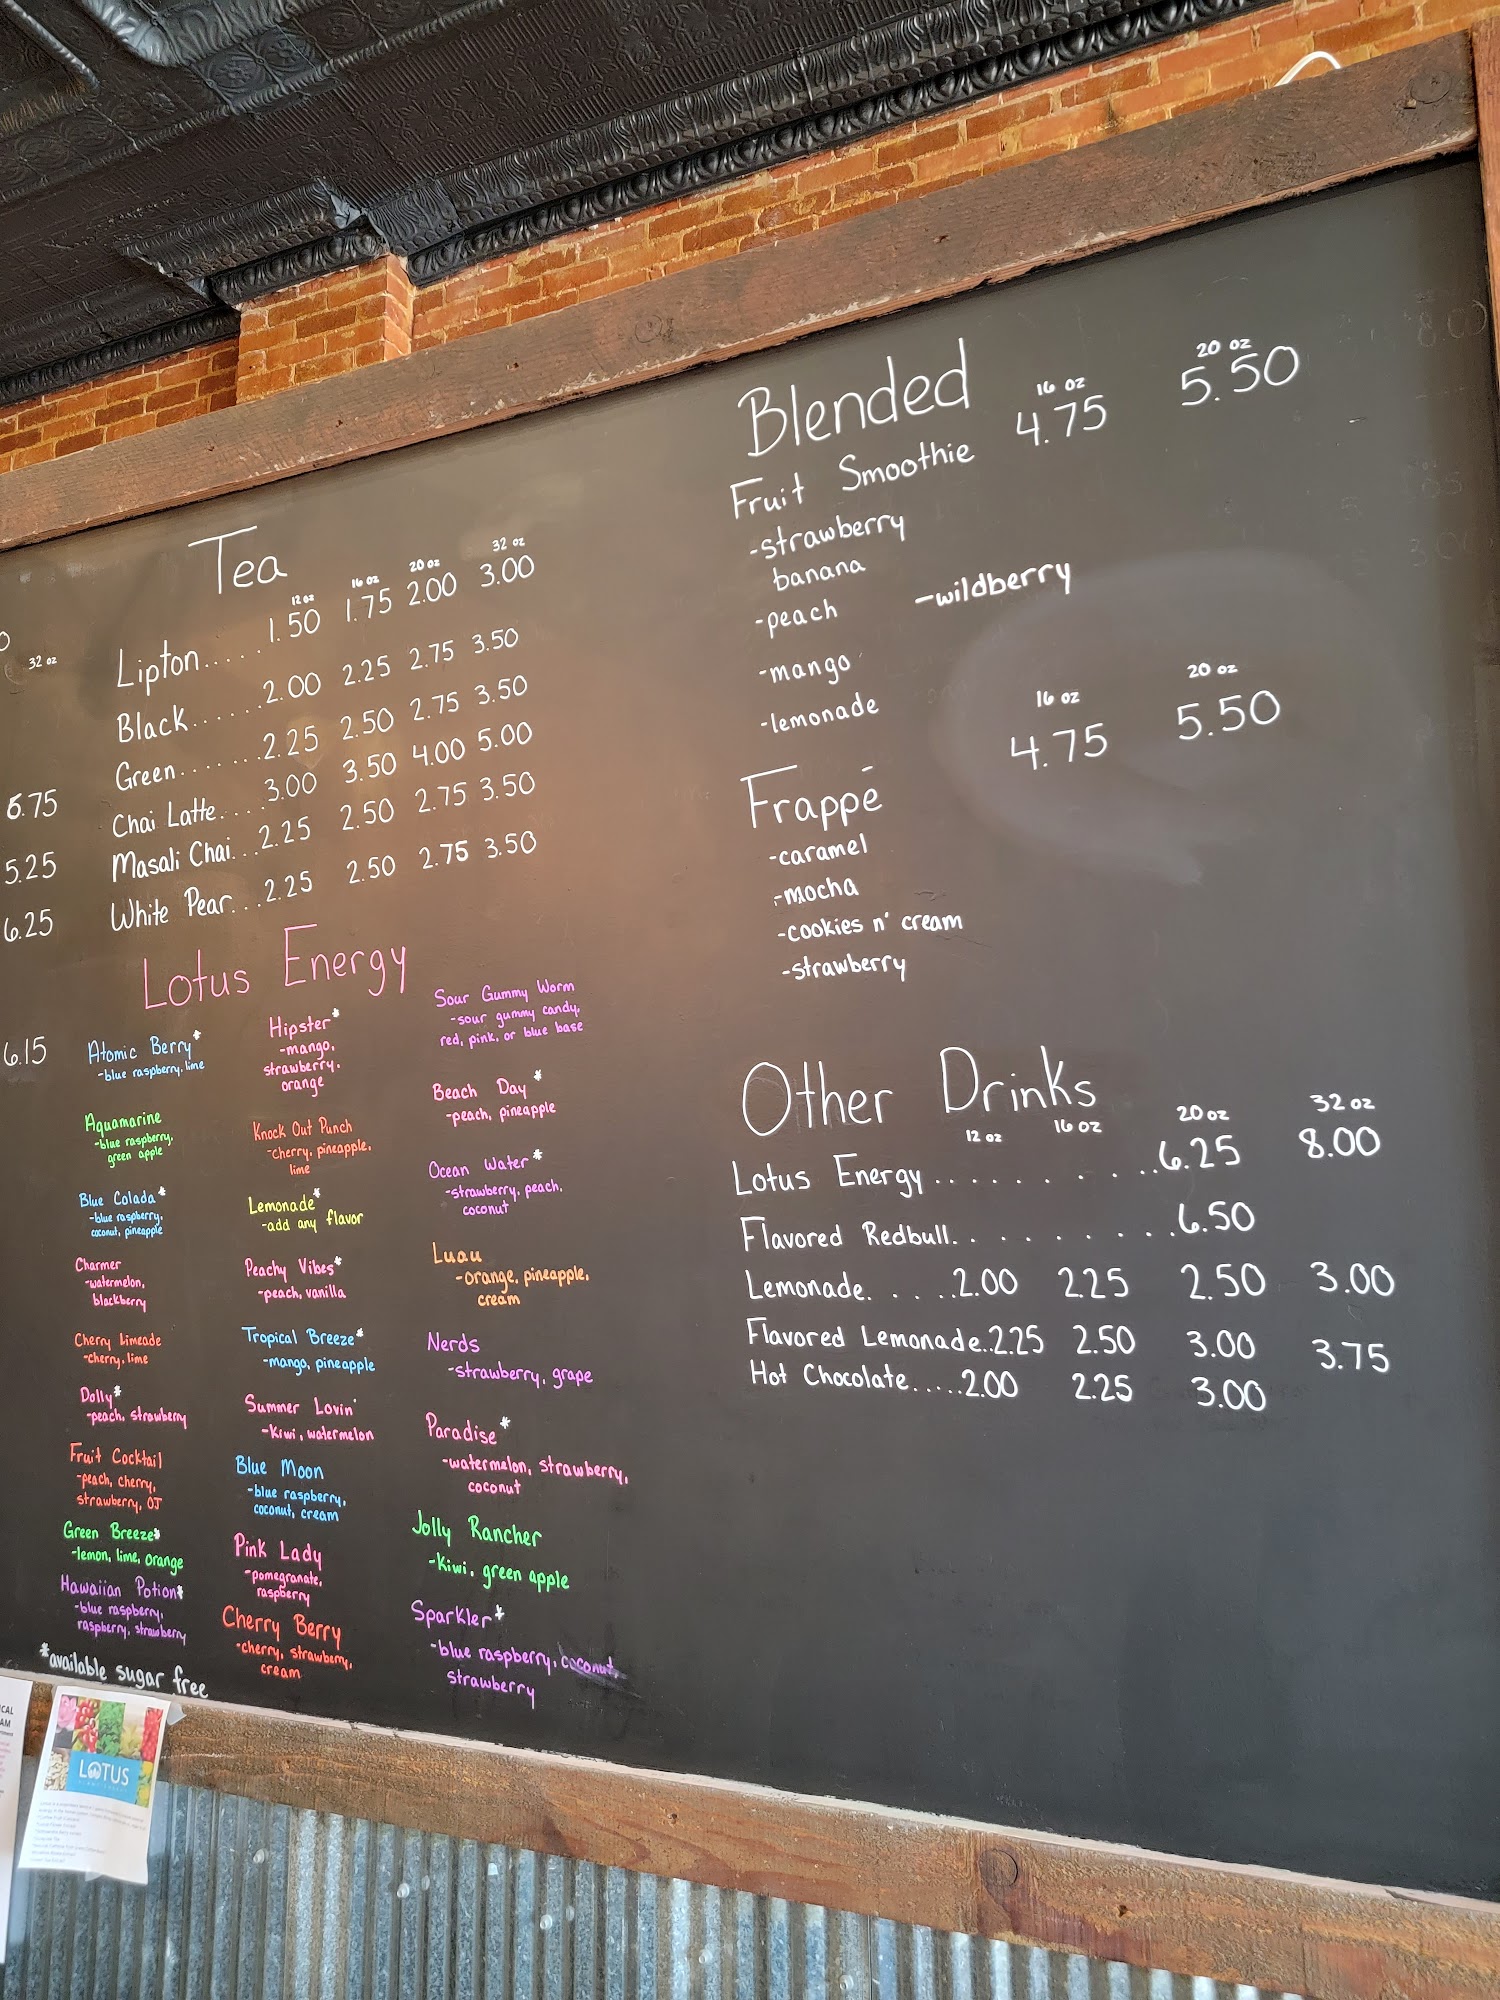 32 oz
6.75
5.25
6.25
6.15
Tea
12 oz 16 oz 20 oz 32 oz
Lipton...... 1.50 1.75 2.00 3.00
Black...... 2.00 2.25 2.75 3.50
Green....... 2.25 2.50 2.75 3.50
Chai Latte.... 3.00 3.50 4.00 5.00
Masali Chai... 2.25 2.50 2.75 3.50
White Pear... 2.25 2.50 2.75 3.50
Lotus Energy
Atomic Berry*
-blue raspberry, lime
Aquamarine
-blue raspberry,
green apple
Blue Colada*
-blue raspberry,
coconut, pineapple
Charmer
-watermelon,
blackberry
Cherry Limeade
-cherry, lime
Dolly*
-peach, strawberry
Fruit Cocktail
-peach, cherry,
strawberry, OJ
Green Breeze*
-lemon, lime, orange
Hawaiian Potion*
-blue raspberry,
raspberry, strawberry
*available sugar free
Hipster*
-mango,
strawberry,
orange
Knock Out Punch
-cherry, pineapple,
lime
Lemonade*
-add any flavor
Peachy Vibes*
-peach, vanilla
Tropical Breeze*
-mango, pineapple
Summer Lovin'
-Kiwi, watermelon
Blue Moon
-blue raspberry,
coconut, cream
Pink Lady
-pomegranate,
raspberry
Cherry Berry
-cherry, strawberry,
cream
Sour Gummy Worm
-sour gummy candy,
red, pink, or blue base
Beach Day*
-peach, pineapple
Ocean Water*
-strawberry, peach,
coconut
Luau
-orange, pineapple,
cream
Nerds
-strawberry, grape
Paradise*
-watermelon, strawberry,
coconut
Jolly Rancher
-Kiwi, green apple
Sparkler*
-blue raspberry, coconut,
strawberry
Blended
16 oz 20 oz
Fruit Smoothie 4.75 5.50
-strawberry
banana
-peach -wildberry
-mango
-lemonade
16 oz 20 oz
Frappé 4.75 5.50
-caramel
-mocha
-cookies n' cream
-strawberry
Other Drinks
12 oz 16 oz 20 oz 32 oz
Lotus Energy........... 6.25 8.00
Flavored Redbull.......... 6.50
Lemonade..... 2.00 2.25 2.50 3.00
Flavored Lemonade.. 2.25 2.50 3.00 3.75
Hot Chocolate..... 2.00 2.25 3.00
LOTUS